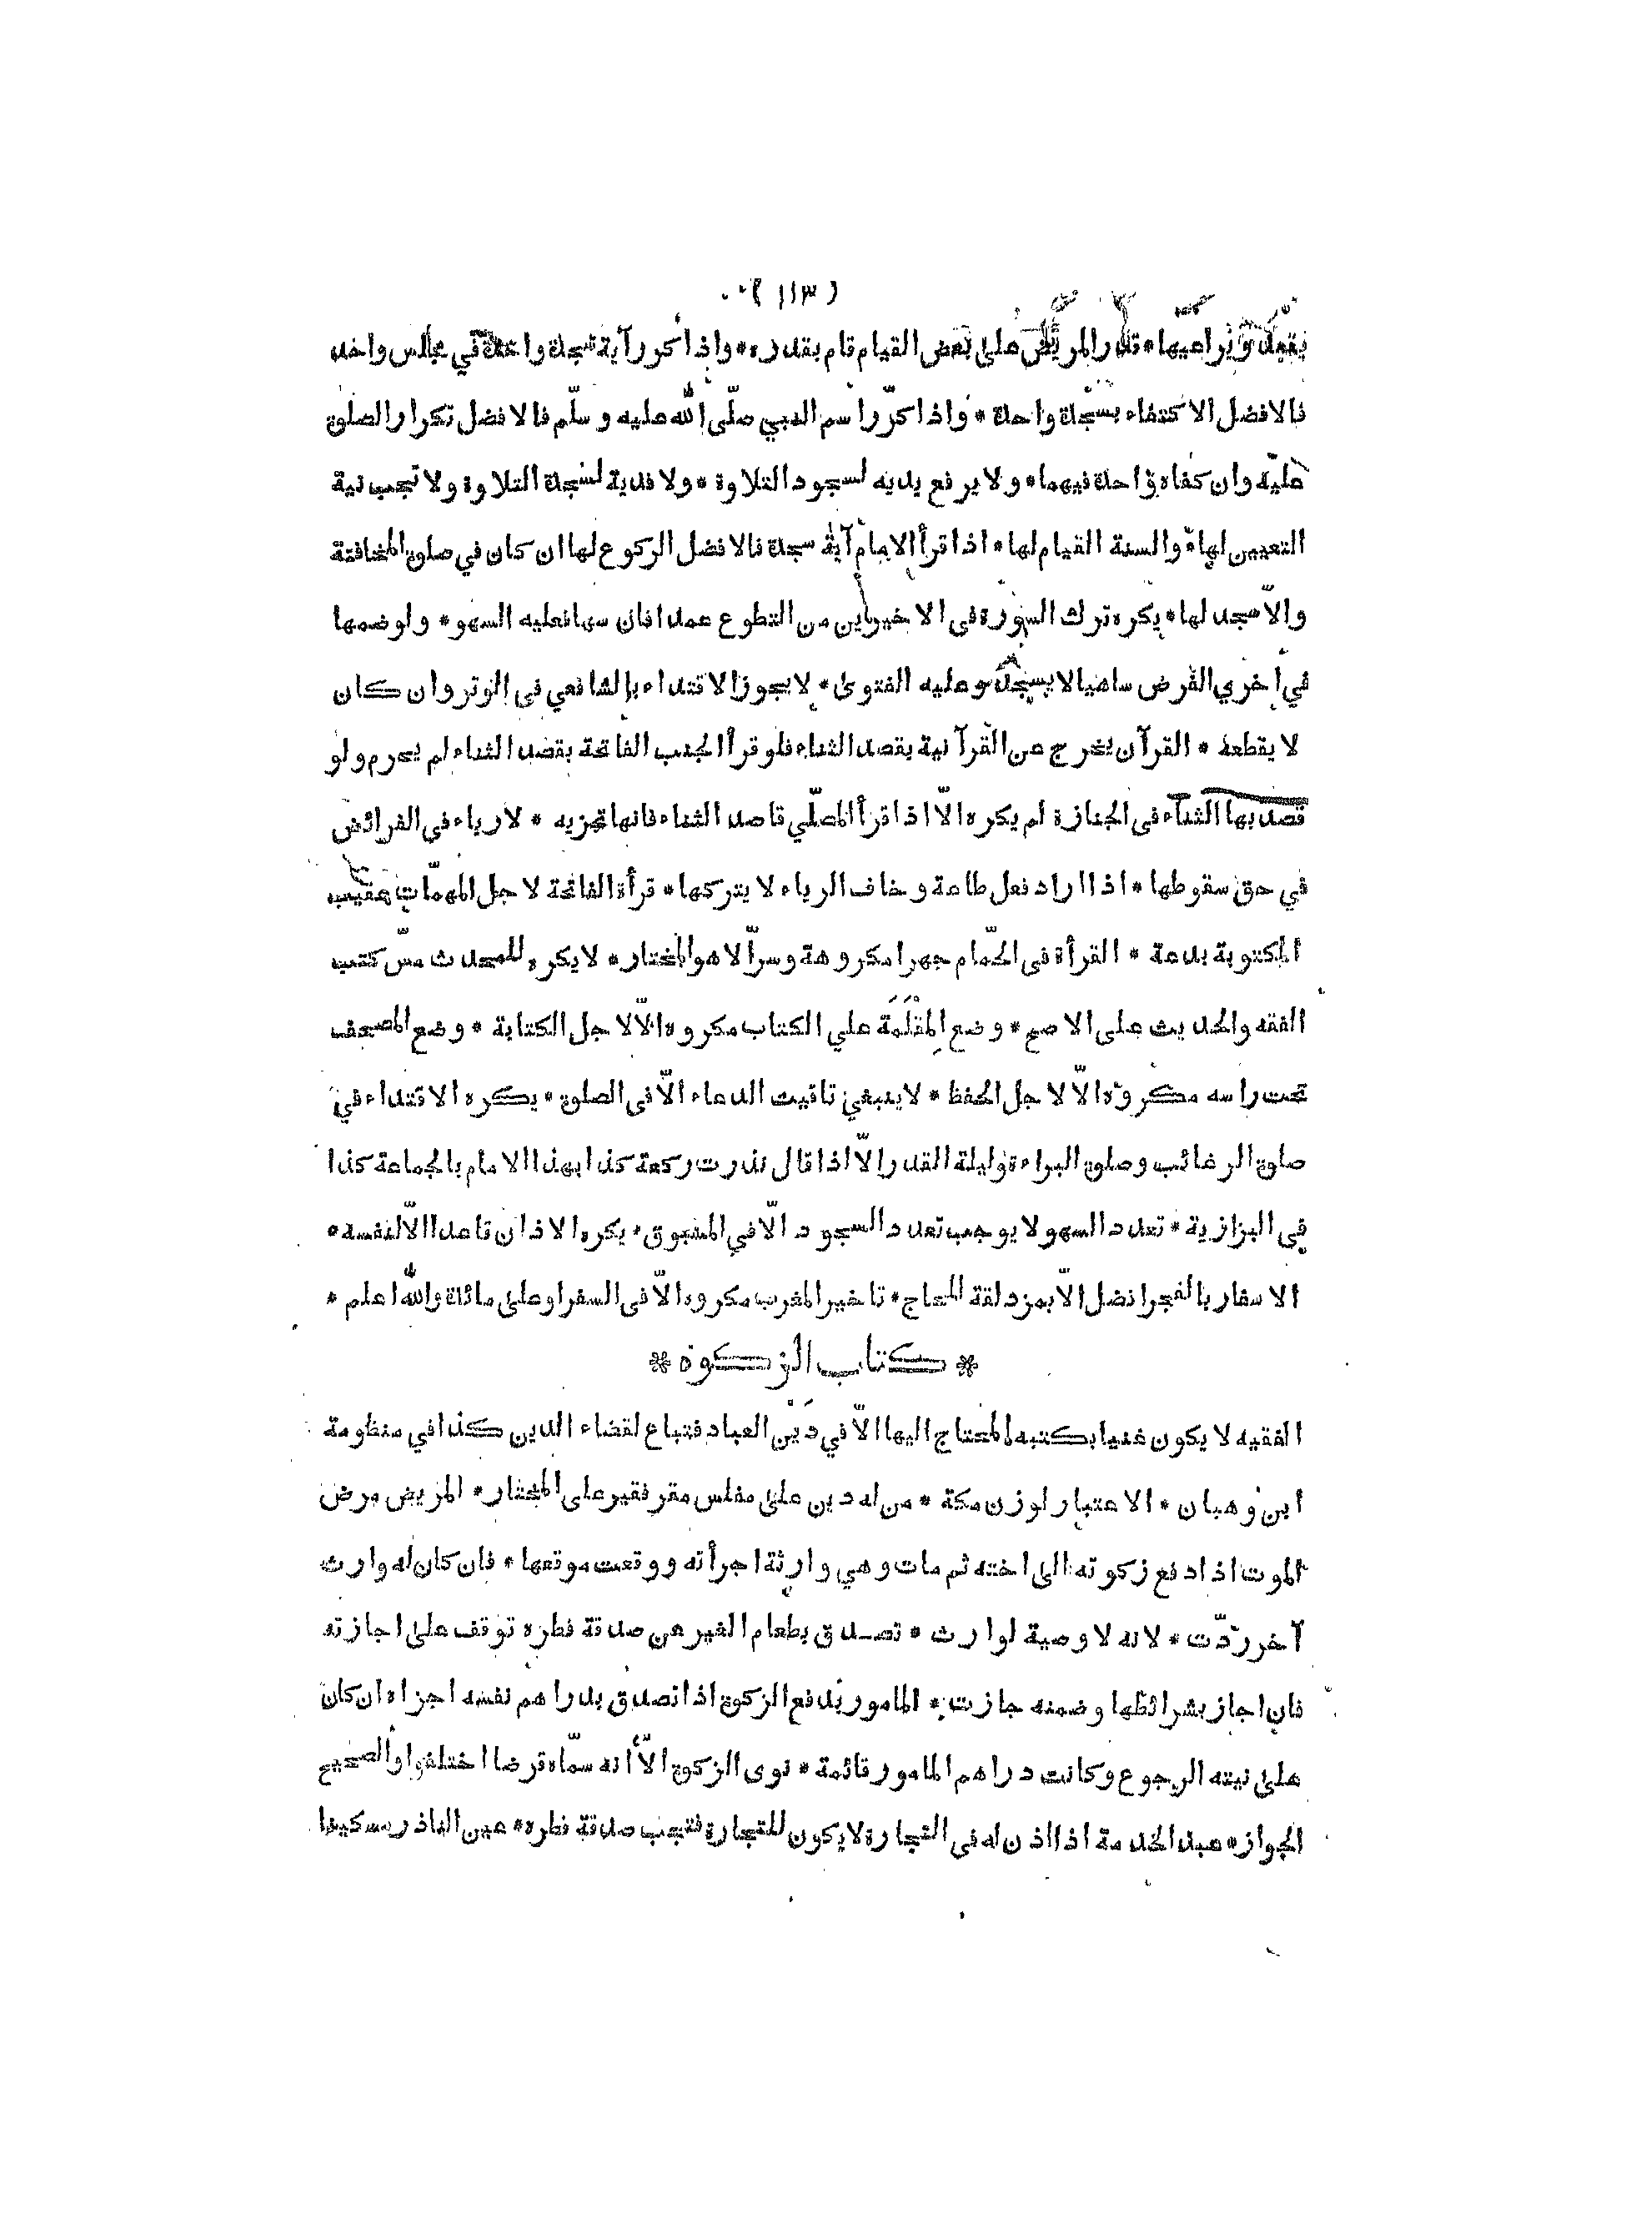 ( ١١٣ )
بقيد ويراعيها * قدر المريض على بعض القيام قام بقدره * واذا كرر آية سجدة واحدة في مجلس واحد
فالافضل الاكتفاء بسجدة واحدة * واذا كرّر اسم النبي صلّى الله عليه وسلّم فالافضل تكرار الصلوة
عليه وان كفاه واحدة فيهما * ولا يرفع يديه لسجود التلاوة * ولا فدية لسجدة التلاوة ولا تجب نية
التعيين لها * والسنة القيام لها * اذا قرأ الامام آية سجدة فالافضل الركوع لها ان كان في صلوة المخافتة
والاّ سجد لها * يكره ترك السورة فى الاخيرتين من التطوع عمدا فان سها فعليه السهو * ولو ضمها
في اخري الفرض ساهيا لا يسجد وعليه الفتوى * لا يجوز الاقتداء بالشافعي فى الوتر وان كان
لا يقطعه * القرآن يخرج عن القرآنية بقصد الثناء فلو قرأ الجنب الفاتحة بقصد الثناء لم يحرم ولو
قصد بها الثناء فى الجنازة لم يكره الاّ اذا قرأ المصلّي قاصد الثناء فانها تجزيه * لا رياء فى الفرائض
في حق سقوطها * اذا اراد فعل طاعة وخاف الرياء لا يتركها * قرأة الفاتحة لاجل المهمّات عقيب
المكتوبة بدعة * القرأة فى الحمّام جهرا مكروهة وسرّا لا هو المختار * لا يكره للمحدث مسّ كتب
الفقه والحديث على الاصح * وضع المِقْلَمَة علي الكتاب مكروه الاّ لاجل الكتابة * وضع المصحف
تحت راسه مكروه الاّ لاجل الحفظ * لا ينبغي تاقيت الدعاء الاّ فى الصلوة * يكره الاقتداء في
صلوة الرغائب وصلوة البراءة وليلة القدر الاّ اذا قال نذرت ركعة كذا بهذا الامام بالجماعة كذا
فى البزازية * تعدد السهو لا يوجب تعدد السجود الاّ في المسبوق * يكره الاذان قاعدا الاّ لنفسه *
الاسفار بالفجر افضل الاّ بمزدلفة للحاج * تاخير المغرب مكروه الاّ فى السفر او على مائدة والله اعلم *
* كتاب الزكوة *
الفقيه لا يكون غنيا بكتبه المحتاج اليها الاّ في دَيْن العباد فتباع لقضاء الدين كذا في منظومة
ابن وهبان * الاعتبار لوزن مكة * من له دين على مفلس مقر فقير على المختار * المريض مرض
الموت اذا دفع زكوته الى اخته ثم مات وهي وارثة اجرأته ووقعت موقعها * فان كان له وارث
آخر ردّت * لانه لا وصية لوارث * تصدق بطعام الغير عن صدقة فطره توقف على اجازته
فان اجاز بشرائطها وضمنه جازت * المامور بدفع الزكوة اذا تصدق بدراهم نفسه اجزاه ان كان
على نيته الرجوع وكانت دراهم المامور قائمة * نوى الزكوة الاّ انه سمّاه قرضا اختلفوا والصحيح
الجواز * عبد الخدمة اذا اذن له فى التجارة لا يكون للتجارة فتجب صدقة فطره * عين الناذر مسكينا